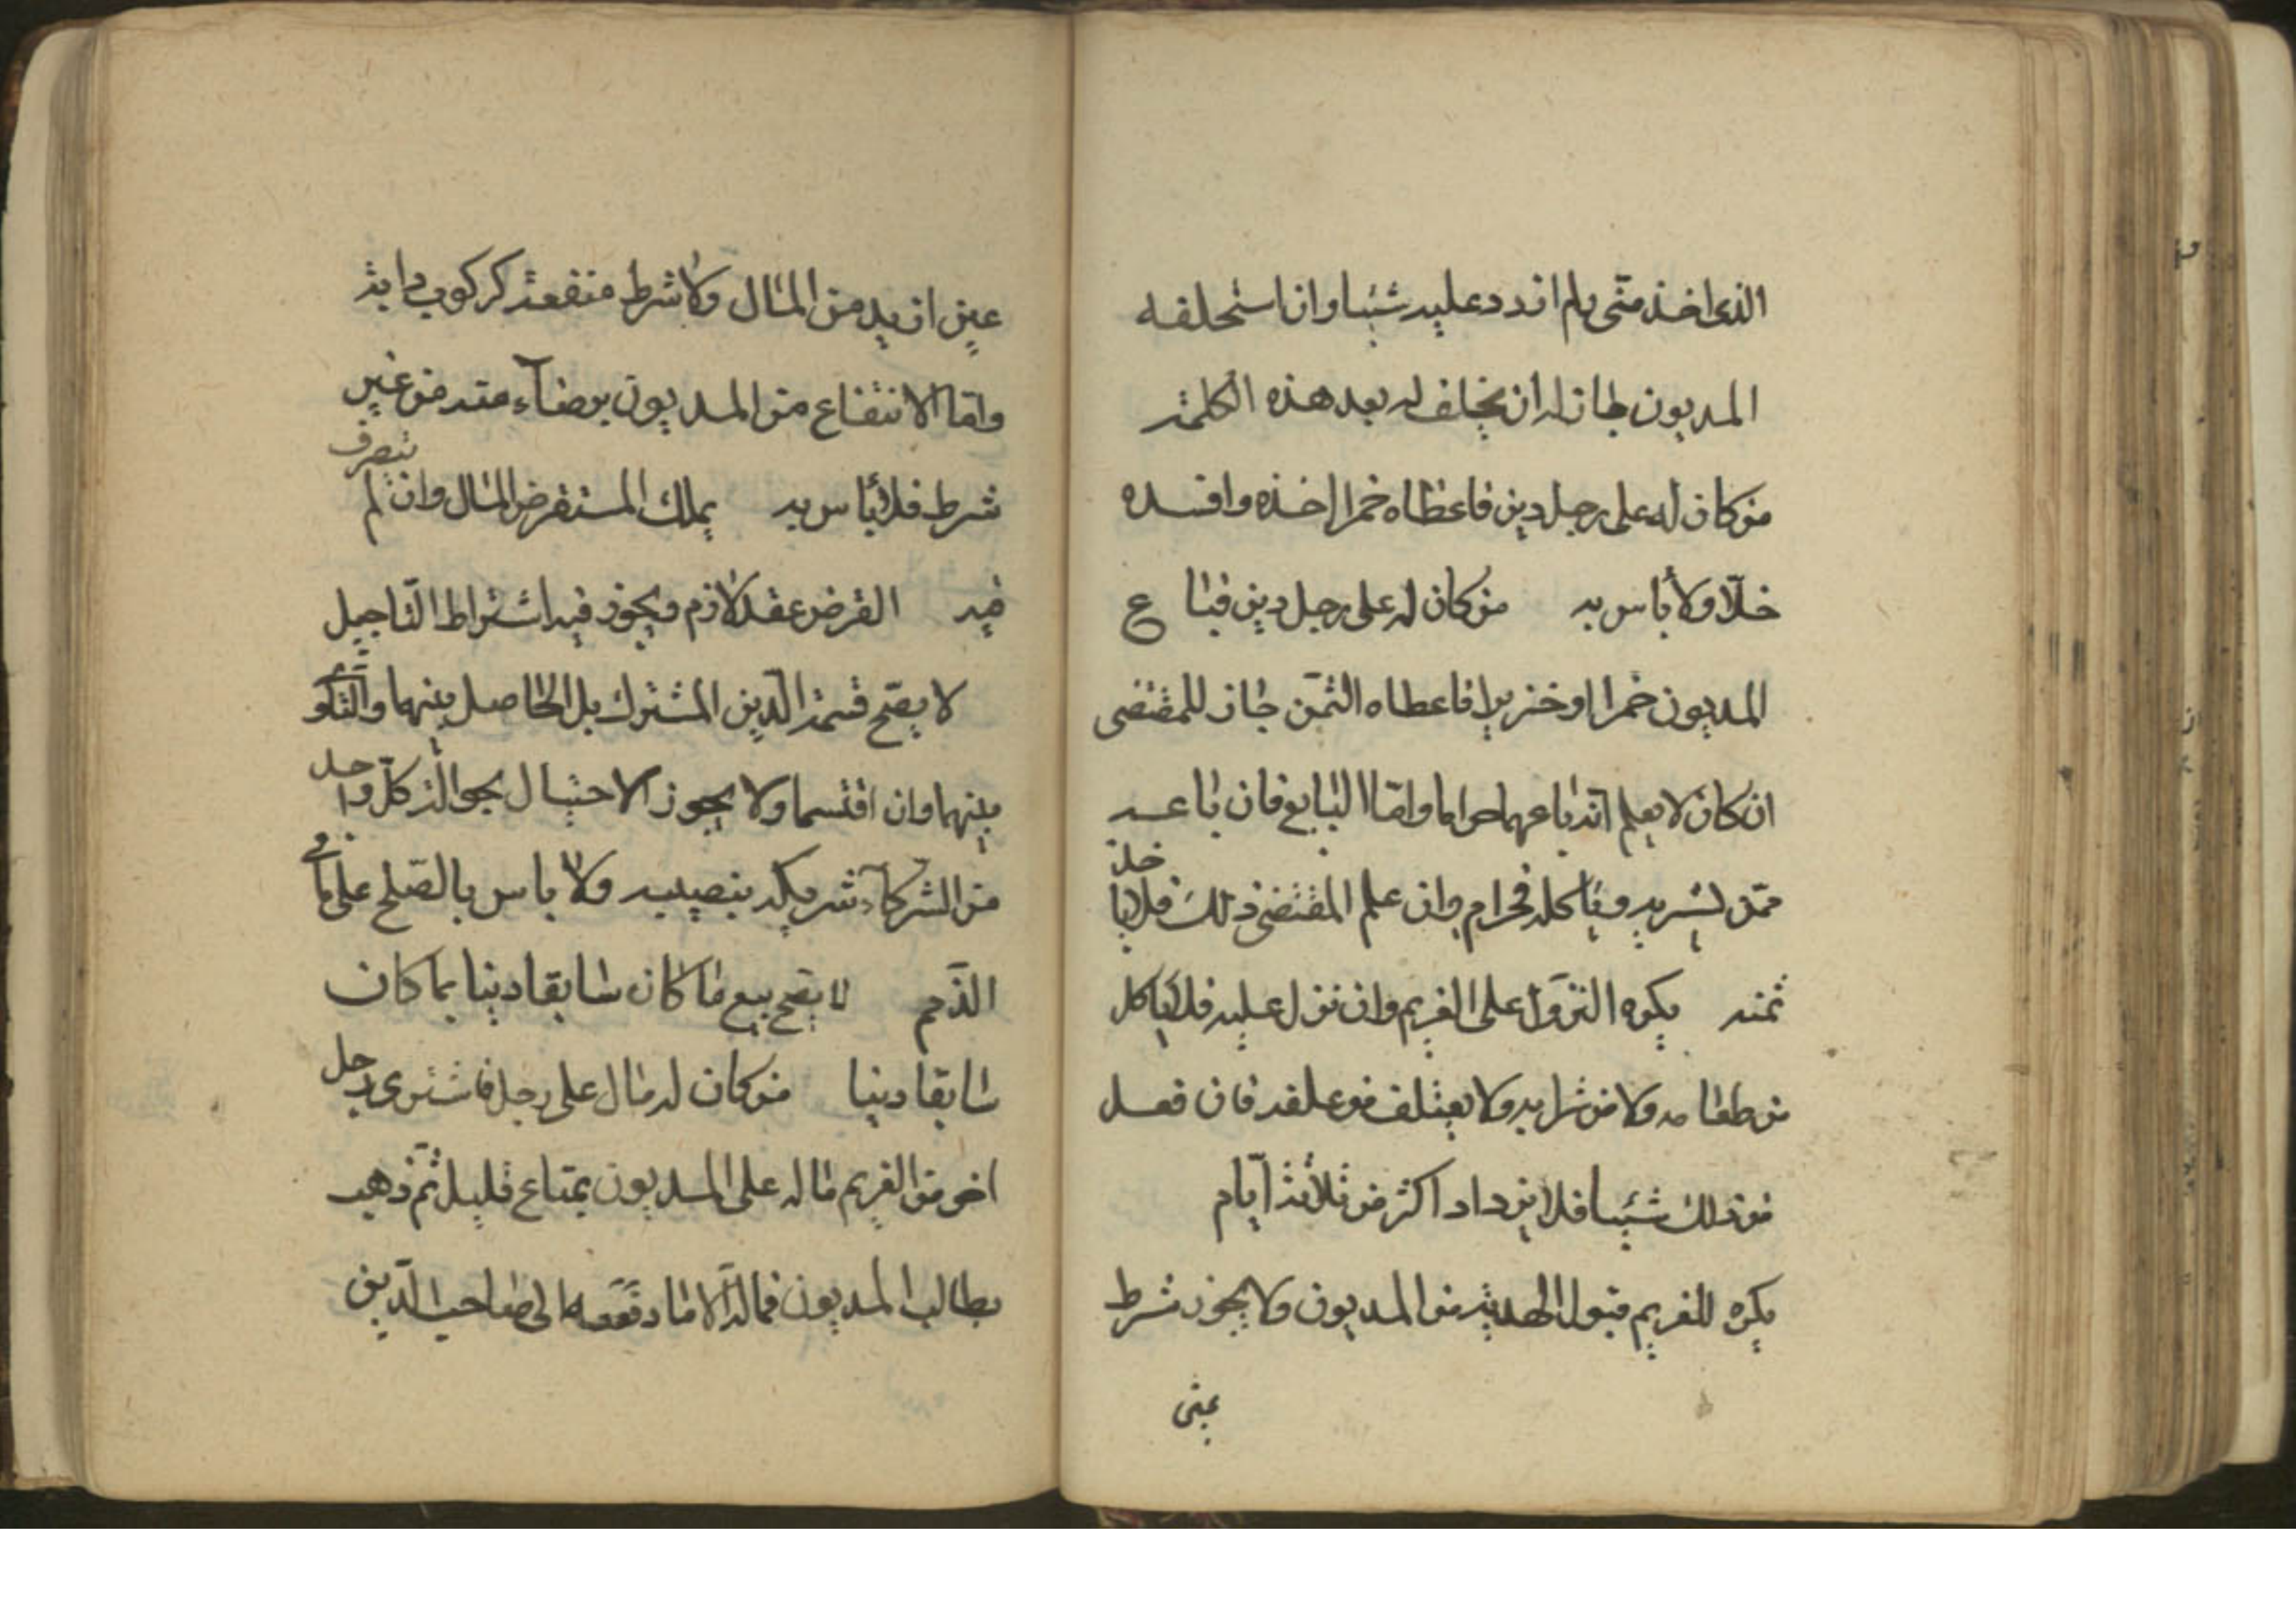 الذى اخذ منّى ولم ازدد عليه شيئا وان استحلفه
المديون جاز له ان يحلف له بعد هذه الكلمة
من كان له على رجل دين فاعطاه خمرا اخذه وافسده
خلّا ولا بأس به من كان له على رجل دين فباع
المديون خمرا او خنزيرا فاعطاه الثمن جاز للمقتضى
ان كان لا يعلم انّه باعهما حراما وامّا البايع فان باعه
ممّن يشربه وياكله فحرام وان علم المقتضى ذلك فلا ياخذ
ثمنه يكره النزول على الغريم وان نزل عليه فلا ياكل
من طعامه ولا من شرابه ولا يعتلف من علفه فان فعل
من ذلك شيئا فلا يزداد اكثر من ثلاثة ايّام
يكره للغريم قبول الهدية من المديون ولا يجوز شرط
عين
عين ازيد من المال ولا شرط منفعة كركوب دابة
وامّا الانتفاع من المديون برضاء منه من غير
شرط فلا بأس به يملك المستقرض المال وان لم يتصرف
فيه القرض عقد لازم ويجوز فيه اشتراط التاجيل
لا يصّح قسمة الدّين المشترك بل الحاصل بينهما والتاوى
بينهما وان اقتسما ولا يجوز الاحتيال بحوالة كلّ واحد
من الشركاء شريكه بنصيبه ولا باس بالصّلح على ما فى
الذّمم لا يصّح بيع ما كان سابقا دينا بما كان
سابقا دينا من كان له مال على رجل فاشترى رجل
اخر من الغريم ماله على المديون بمتاع قليل ثمّ ذهب
يطالب المديون فماله الّا ما دفعه الى صاحب الدّين